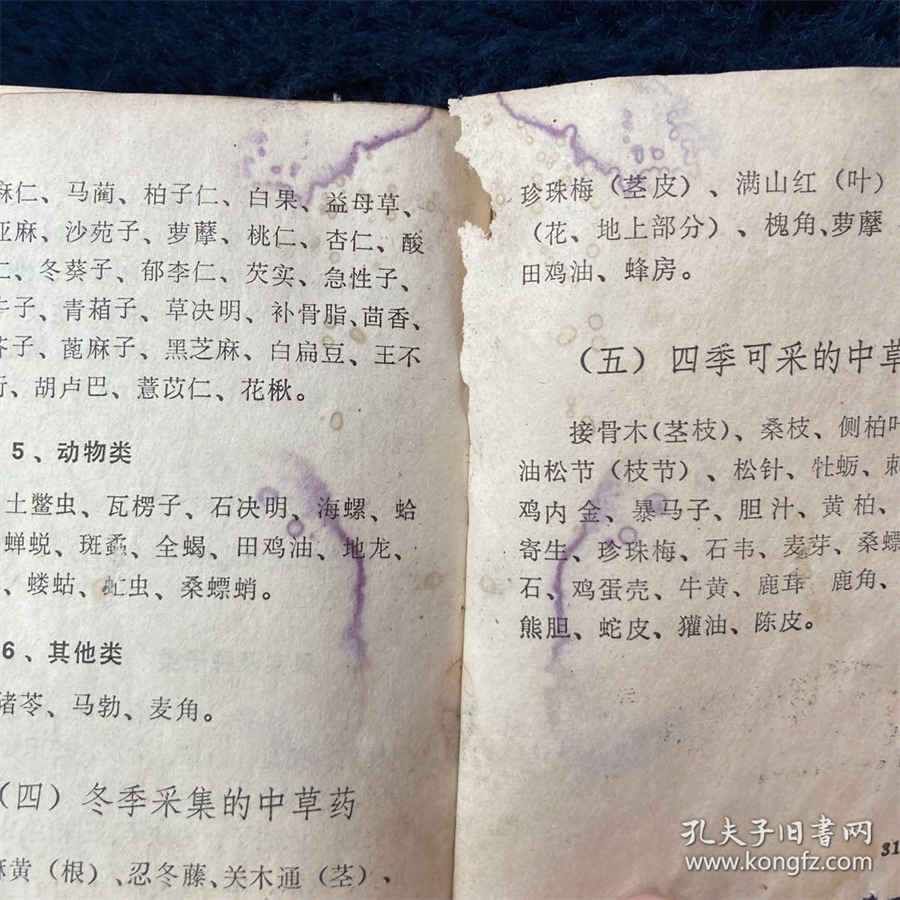 麻仁、马蔺、柏子仁、白果、益母草、
亚麻、沙苑子、萝藦、桃仁、杏仁、酸
仁、冬葵子、郁李仁、芡实、急性子、
牛子、青葙子、草决明、补骨脂、茴香、
芥子、蓖麻子、黑芝麻、白扁豆、王不
行、胡卢巴、薏苡仁、花楸。
5、动物类
土鳖虫、瓦楞子、石决明、海螺、蛤
蝉蜕、斑蝥、全蝎、田鸡油、地龙、
、蝼蛄、虻虫、桑螵蛸。
6、其他类
猪苓、马勃、麦角。
（四）冬季采集的中草药
麻黄（根）、忍冬藤、关木通（茎）、
珍珠梅（茎皮）、满山红（叶）
（花、地上部分）、槐角、萝藦
田鸡油、蜂房。
（五）四季可采的中草
接骨木（茎枝）、桑枝、侧柏叶
油松节（枝节）、松针、牡蛎、刺
鸡内金、暴马子、胆汁、黄柏、
寄生、珍珠梅、石韦、麦芽、桑螵
石、鸡蛋壳、牛黄、鹿茸 鹿角、
熊胆、蛇皮、獾油、陈皮。
31
孔夫子旧書网
www.kongfz.com